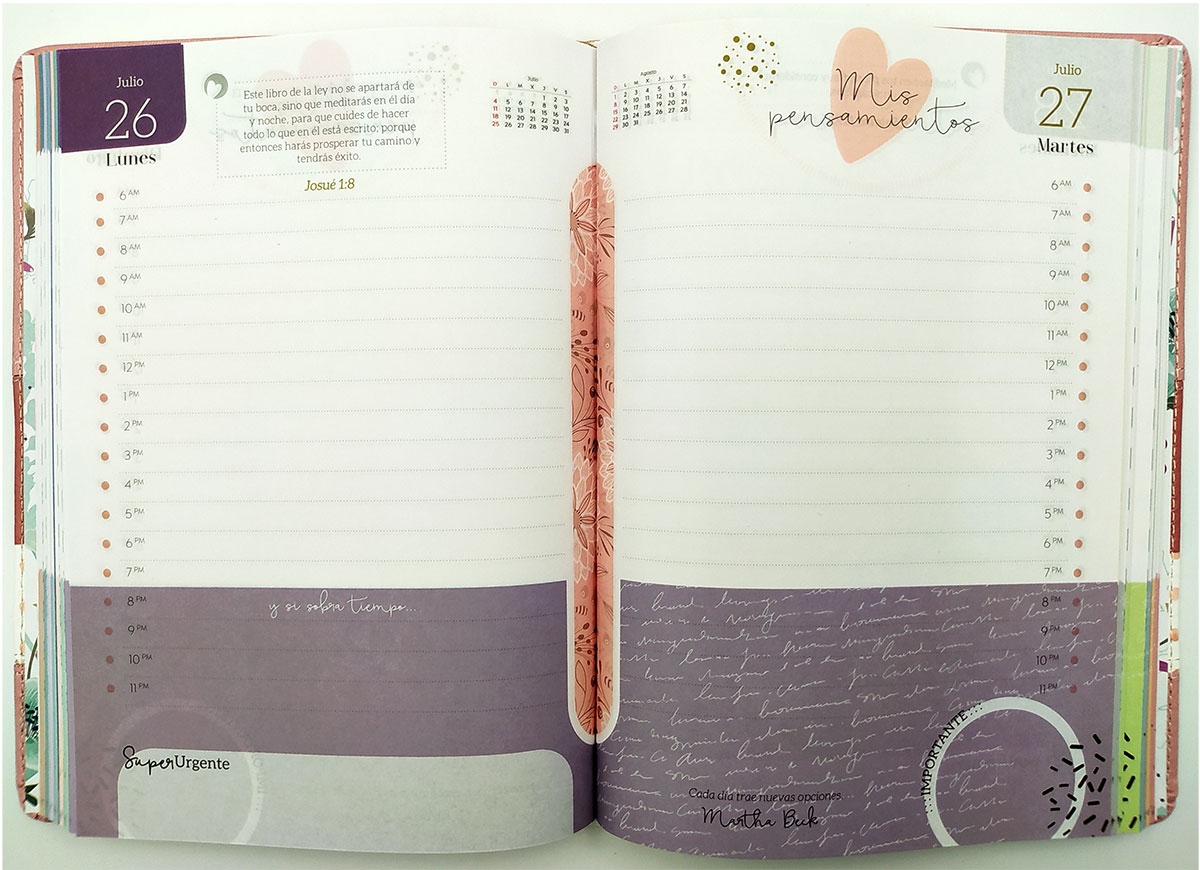 Julio
26
Lunes
Este libro de la ley no se apartará de
tu boca, sino que meditarás en él día
y noche, para que cuides de hacer
todo lo que en él está escrito; porque
entonces harás prosperar tu camino y
tendrás éxito.
Josué 1:8
Julio
D L M M J V S
1 2 3
4 5 6 7 8 9 10
11 12 13 14 15 16 17
18 19 20 21 22 23 24
25 26 27 28 29 30 31
6 AM
7 AM
8 AM
9 AM
10 AM
11 AM
12 PM
1 PM
2 PM
3 PM
4 PM
5 PM
6 PM
7 PM
8 PM
y si sobra tiempo...
9 PM
10 PM
11 PM
SuperUrgente
Agosto
D L M M J V S
1 2 3 4 5 6 7
8 9 10 11 12 13 14
15 16 17 18 19 20 21
22 23 24 25 26 27 28
29 30 31
Mis
pensamientos
Julio
27
Martes
6 AM
7 AM
8 AM
9 AM
10 AM
11 AM
12 PM
1 PM
2 PM
3 PM
4 PM
5 PM
6 PM
7 PM
8 PM
9 PM
10 PM
11 PM
...IMPORTANTE...
Cada día trae nuevas opciones.
Martha Beck